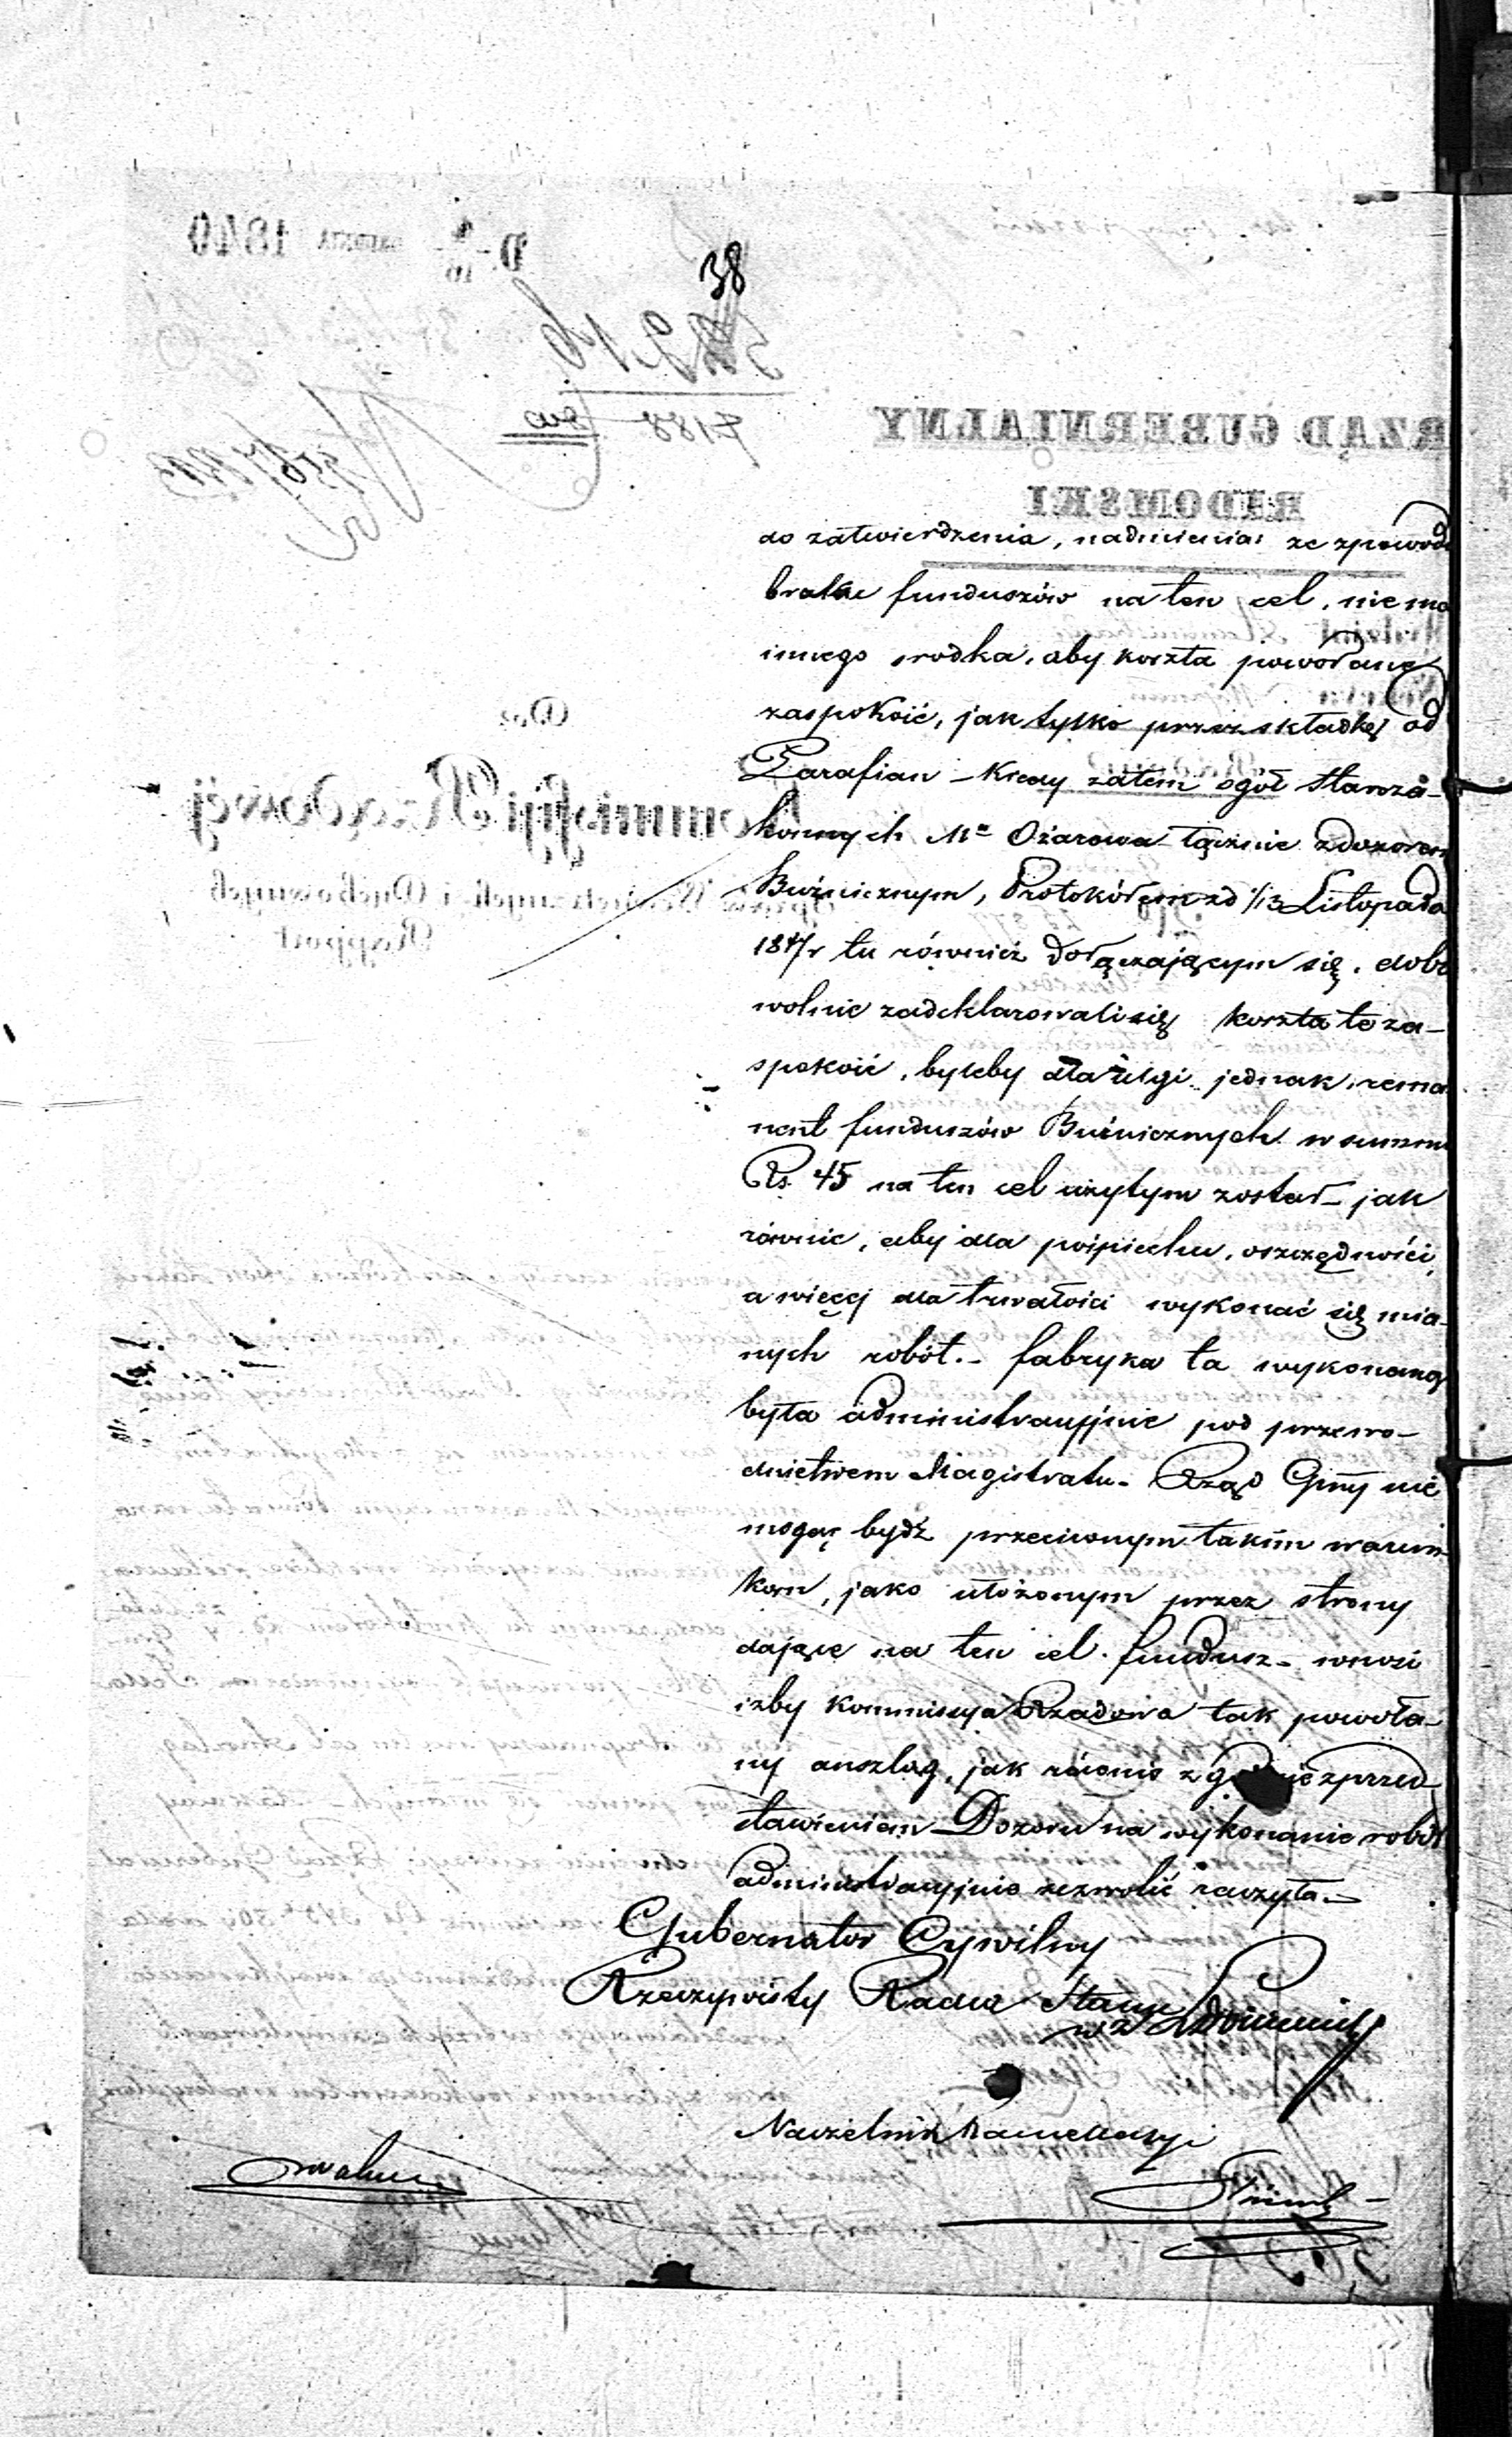 38
do zatwierdzenia, nadmienia że zpowodu
braku funduszów na ten cel, niema
innego srodka, aby koszta powołane
zaspokoić, jak tylko przez składkę od
Parafian – Kiedy zatem ogół Staroza-
konnych Mta Ożarowa łącznie z dozorem
Bużnicznym, Protokółem z d 1/13 Listopada
1847r tu również dołączającym się, dobro
wolnie zadeklarowali się koszta te za-
spokoić, byleby dla ulgi jednak, rema
nent funduszów Bużnicznych w summie
Rs. 45 na ten cel użytym został – jak
równie, aby dla pośpiechu, oszczędności,
a więcej dla trwałości wykonać się mia-
nych robót. – fabryka ta wykonaną
była administracyjnie pod przewo-
dnictwem Magistratu. – Rząd Gny nie
mogąc bydź przeciwnym takim warun-
kom, jako ułożonym przez strony
dające na ten cel fundusz – wnosi
iżby Kommissya Rządowa tak powoła-
ny anszlag, jak równie zgodnie z przed
stawieniem Dozoru na wykonanie robót
administracyjnie zezwolić raczyła. –
Gubernator Cywilny
Rzeczywisty Radca Stanu
w z
Naczelnik Kancellaryi